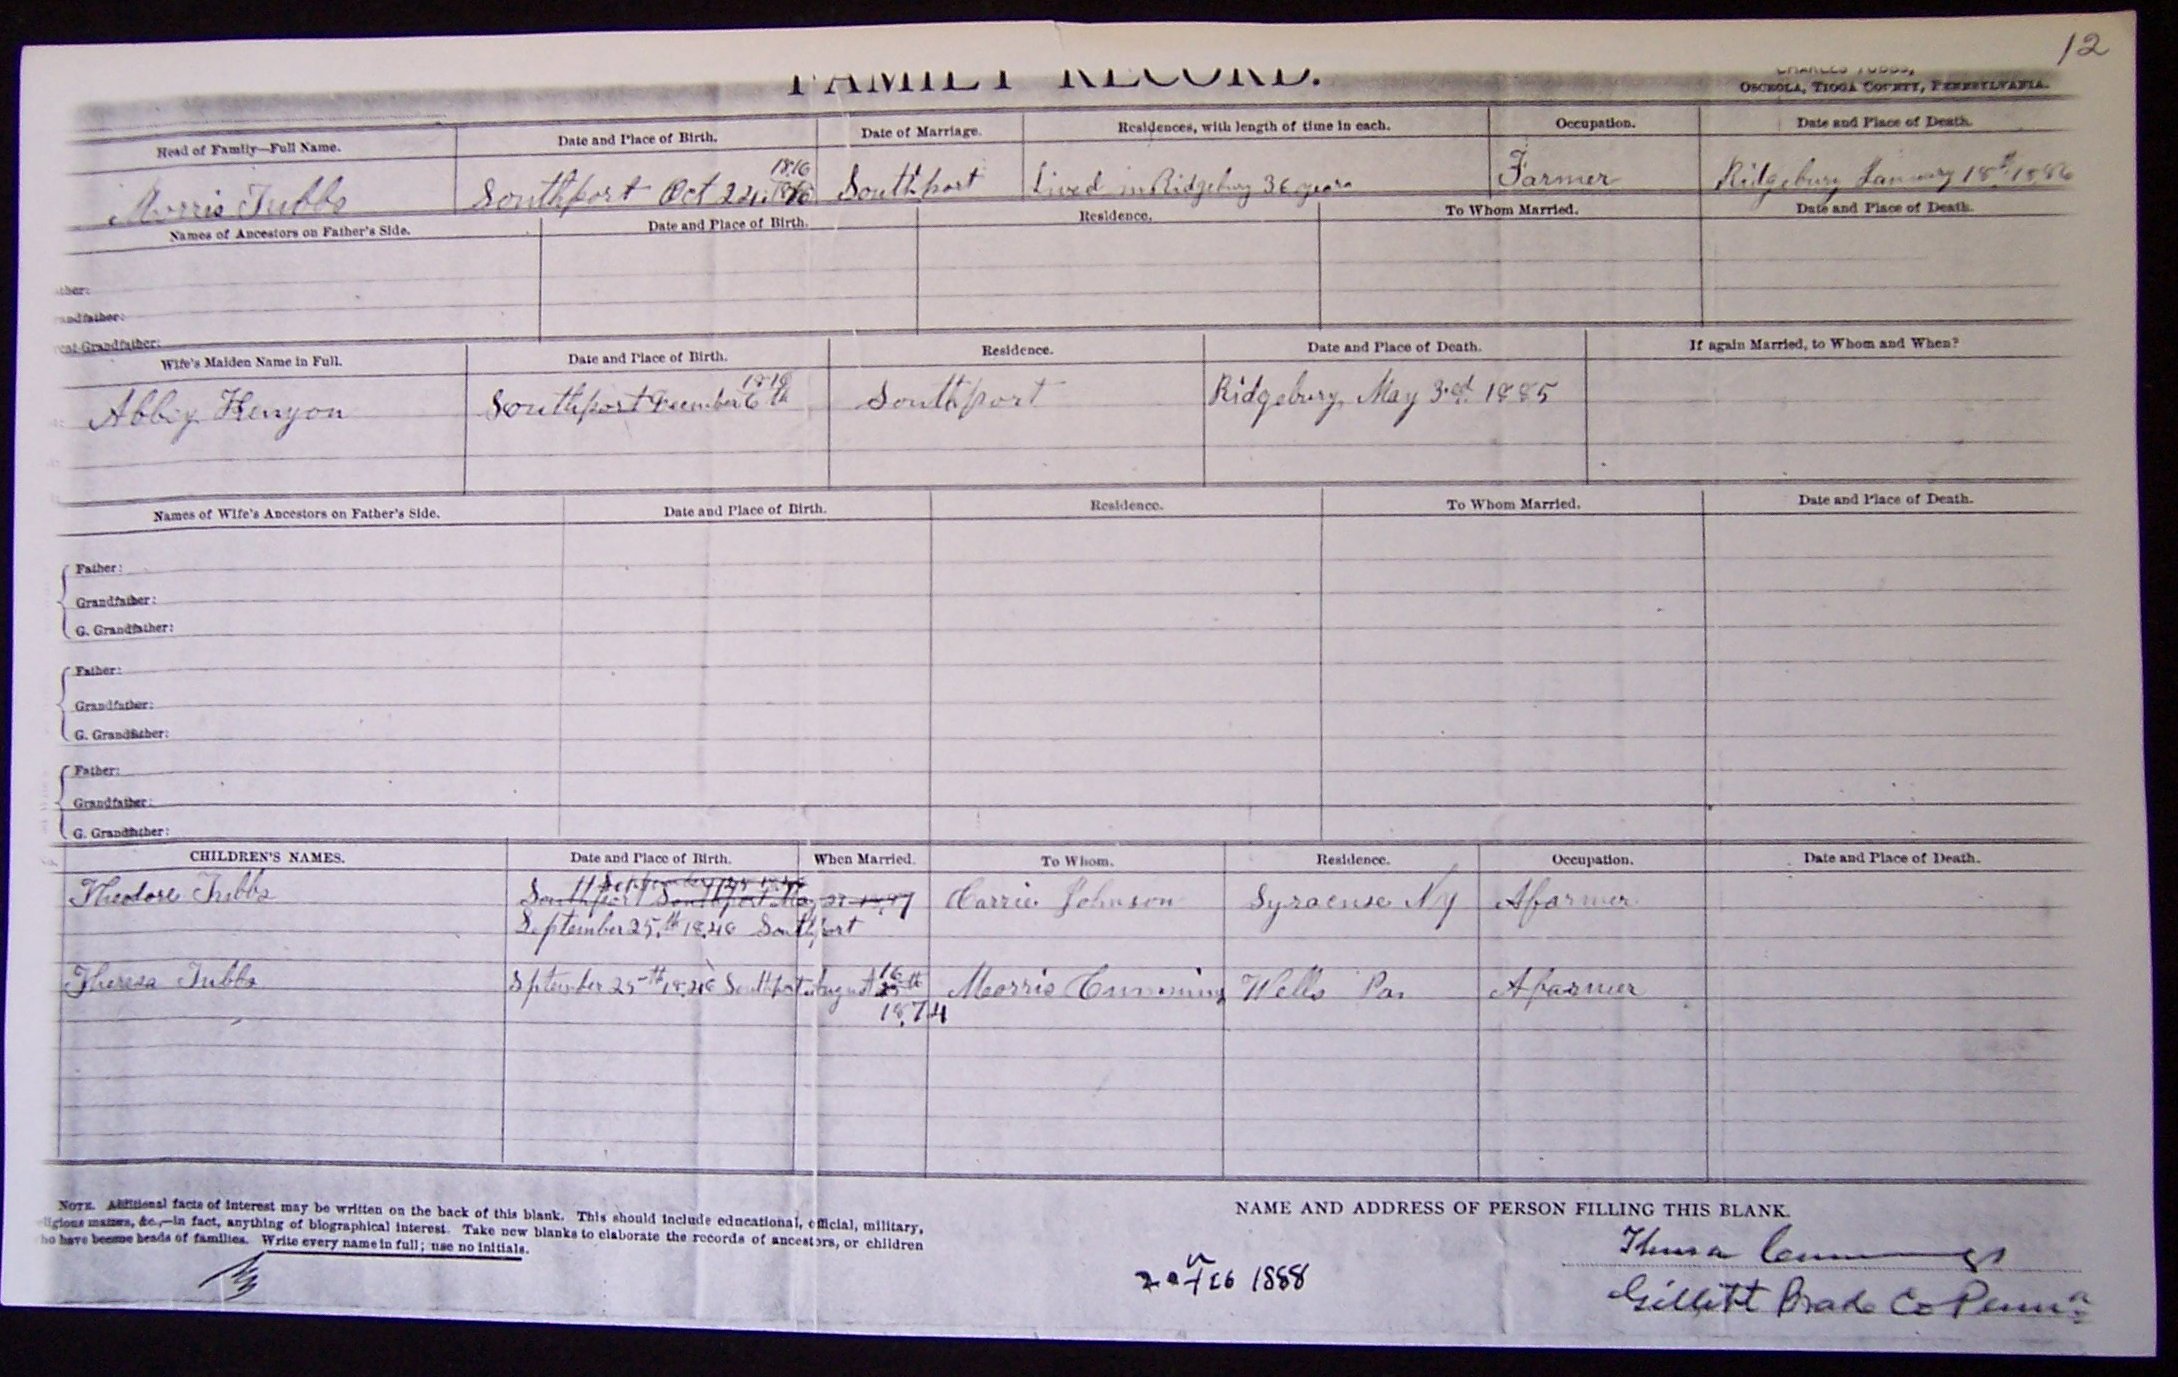 12
FAMILY RECORD.
CHARLES TUBBS,
OSCEOLA, TIOGA COUNTY, PENNSYLVANIA.
Head of Family—Full Name. Date and Place of Birth. Date of Marriage. Residences, with length of time in each. Occupation. Date and Place of Death.
1816
Morris Tubbs Southport Oct 24, Southport Lived in Ridgebury 36 years Farmer Ridgebury January 18th 1886
Names of Ancestors on Father's Side. Date and Place of Birth. Residence. To Whom Married. Date and Place of Death.
ther:
andfather:
eat-Grandfather:
Wife's Maiden Name in Full. Date and Place of Birth. Residence. Date and Place of Death. If again Married, to Whom and When?
Abbey Kenyon Southport December 6th Southport Ridgebury, May 3rd 1885
Names of Wife's Ancestors on Father's Side. Date and Place of Birth. Residence. To Whom Married. Date and Place of Death.
Father:
Grandfather:
G. Grandfather:
Father:
Grandfather:
G. Grandfather:
Father:
Grandfather:
G. Grandfather:
CHILDREN'S NAMES. Date and Place of Birth. When Married. To Whom. Residence. Occupation. Date and Place of Death.
Theodore Tubbs Southport Southport May Carrie Johnson Syracuse NY A farmer
September 25th 1848 Southport
Theresa Tubbs September 25th 1848 Southport August 16 th Morris Cumming Wells Pa. A farmer
1874
NOTE. Additional facts of interest may be written on the back of this blank. This should include educational, official, military,
ligious matters, &c.,—in fact, anything of biographical interest. Take new blanks to elaborate the records of ancestors, or children
ho have become heads of families. Write every name in full; use no initials.
NAME AND ADDRESS OF PERSON FILLING THIS BLANK.
Cummings
Feb 1888
Gillett Brad Co Penna